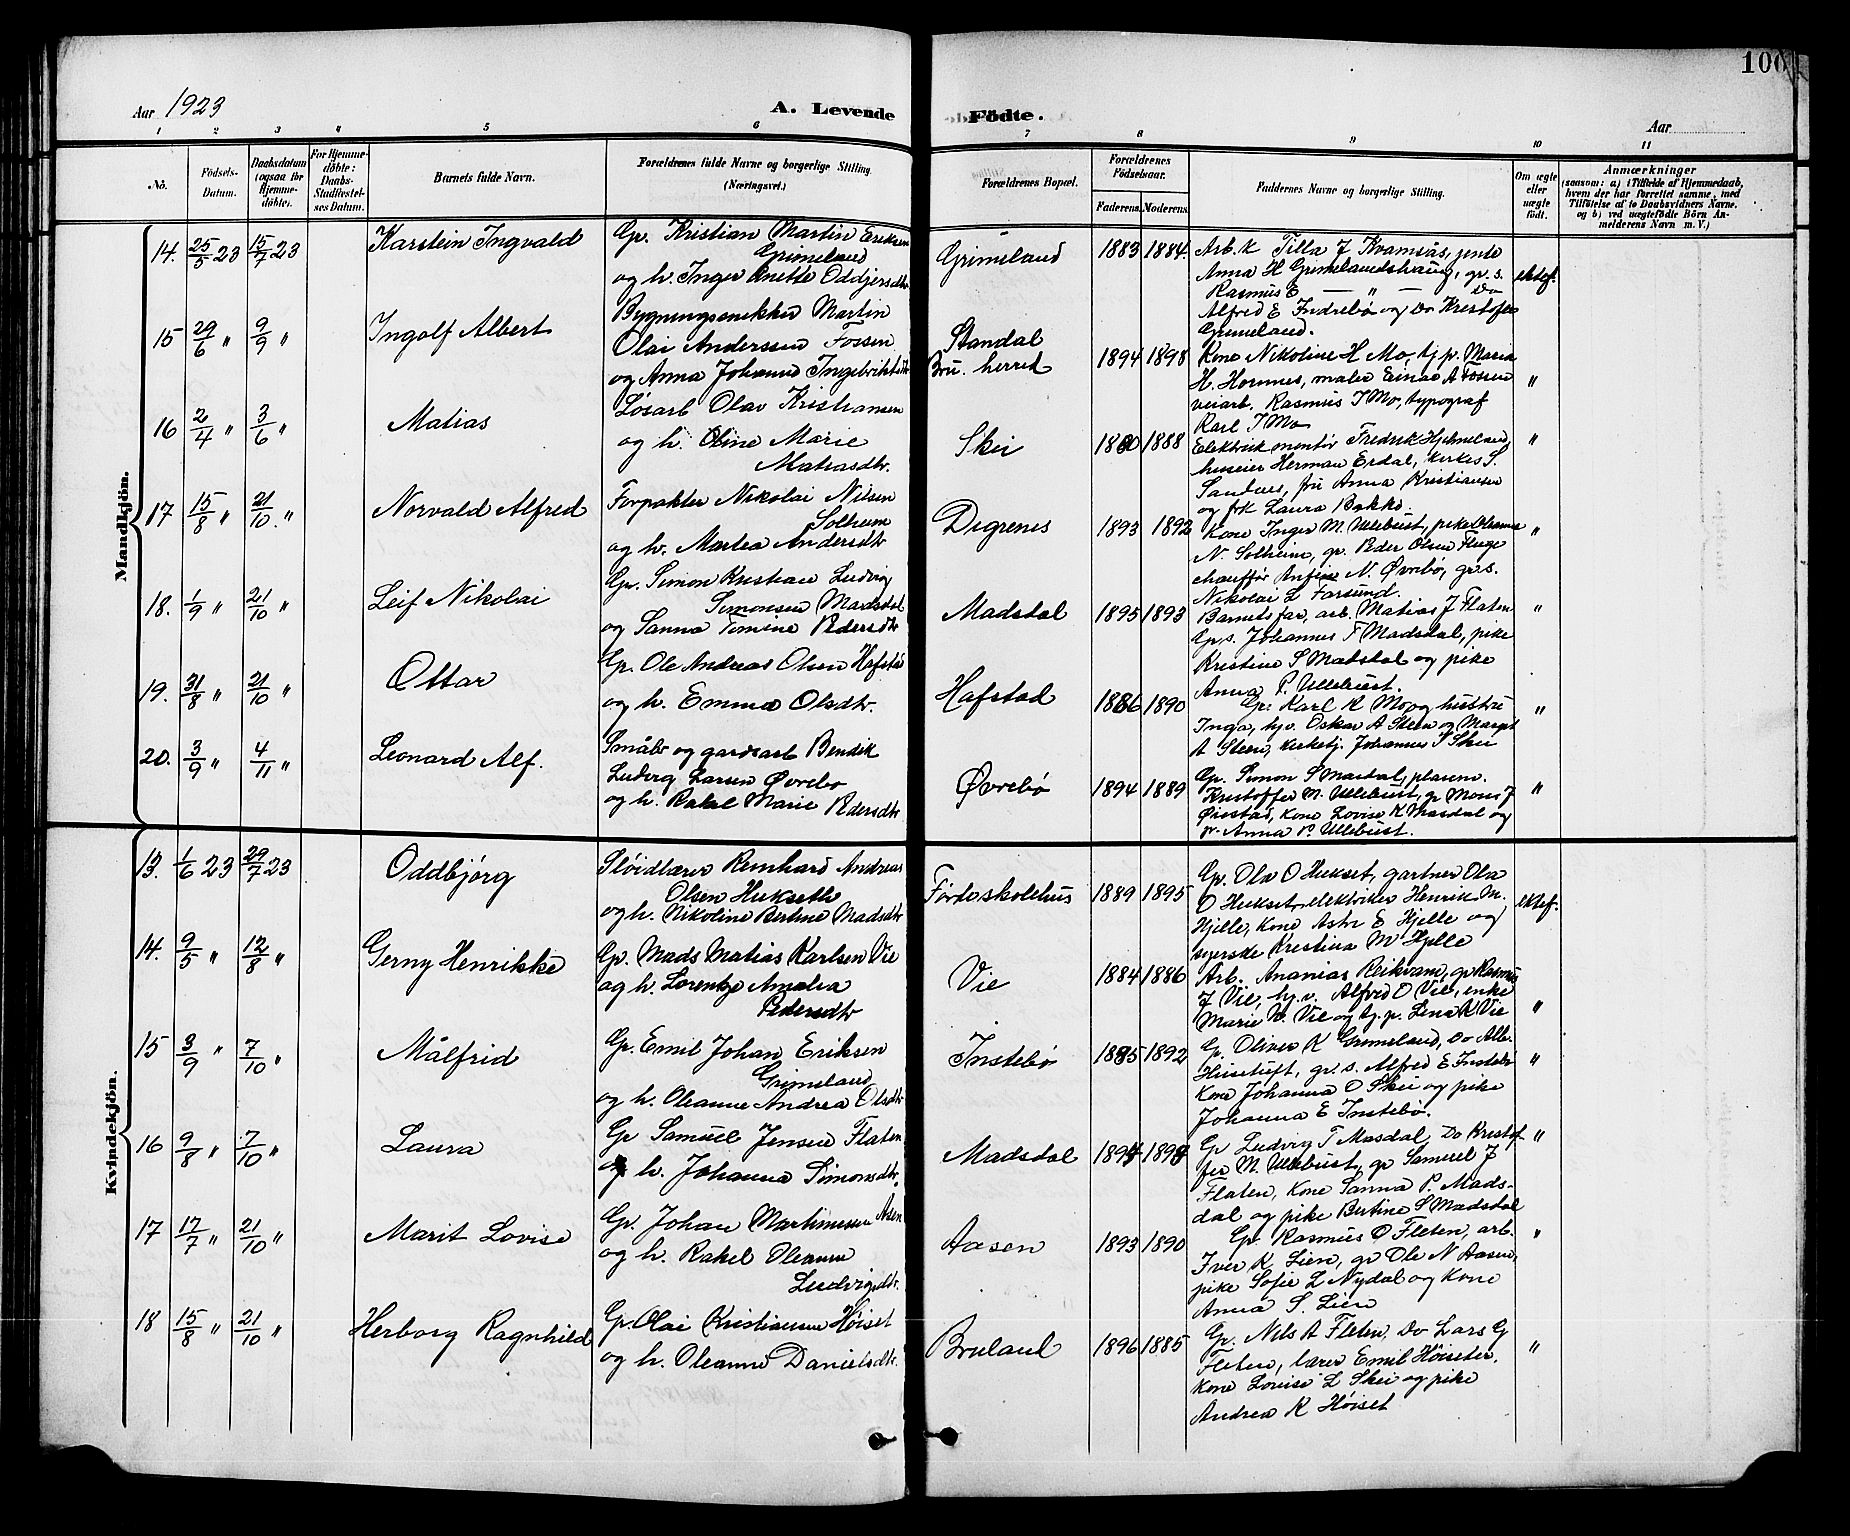 100
Aar 1923
A. Levende
Födte.
Aar
1 2 3 4 5 6 7 8 9 10 11
No.
Födsels-Datum.
Daabsdatum (ogsaa for Hjemmedöbte).
For Hjemmedöbte: Daabs-Stadfestelses Datum.
Barnets fulde Navn.
Forældrenes fulde Navne og borgerlige Stilling. (Næringsvei.)
Forældrenes Bopæl.
Forældrenes Födselsaar.
Faderens. Moderens.
Faddernes Navne og borgerlige Stilling.
Om ægte eller uægte födt.
Anmærkninger
(saasom: a) i Tilfælde af Hjemmedaab, hvem der har forrettet samme, med Tilföielse af to Daabsvidners Navne, og b) ved uægtefödte Börn Anmelderens Navn m. V.)
Mandkjön.
14. 25/5 23 15/7 23 Karstein Ingvald
Gp. Kristian Martin Eriksen
Grimeland
og h. Inger Anette Oddgjersdtr
Grimeland 1883 1884.
Arb. k Tilla J Kvamsås, jente
Anna H Grimelandshaug, gr. s.
Rasmus E — " — Do
Alfred E Indrebö og Do Kristofer
Grimeland.
ektef.
15 29/6 " 9/9 " Ingolf Albert
Bygningssnikker Martin
Olai Anderssen Fossen
og Anna Johanne Ingebriktsdtr
Standal
Bru. herred 1894 1898
Kone Nikoline H Mo, tj. p. Maria
H. Hornnes, maler Einar A Fossen
veiarb. Rasmus I Mo, typograf
Karl I Mo
"
16 2/4 " 3/6 " Matias
Lösarb Olav Kristiansen
og h. Oline Marie
Matiasdtr.
Skei 1880 1888
Elektrisk montör Fredrik Hjelmeland,
huseier Herman Erdal, kirkes S.
Sandnes, fru Anna Kristiansen
og frk Laura Bakke.
"
17 15/8 " 21/10. " Norvald Alfred
Forpakter Nikolai Nilsen
Solheim
og h. Martea Andersdtr
Digrenes 1893 1892
Kone Inger M. Ullebust, pike Oleanna
N. Solheim, gp. Peder Olsen Fluge
chauffør Anfin N. Øvrebö, gr. s.
Nikolai L Farsund.
"
18. 1/9 " 21/10 " Leif Nikolai
Gp. Simon Kristian Ludvig
Simonsen Madsdal
og Sanna Tomine Pedersdtr
Madsdal 1895 1893
Barnets far, arb. Matias J Flaten
Gp. s. Johannes F Madsdal, pike
Kristine S Madsdal og pike
Anna P. Ullebust.
"
19. 31/8 " 21/10 " Ottar
Gp. Ole Andreas Olsen Hafstad
og h. Emma Olsdtr.
Hafstad 1886 1890
Gp. Karl K Mo og hustru
Inga, hjv. Oskar A Steen og Margit
A Steen, kirketj. Johannes S Skei
"
20. 3/9 " 4/11 " Leonard Alf.
Småbr og gardsarb Bendik
Ludvig Larsen Øvrebö
og h. Rakel Marie Pedersdtr
Øvrebö 1894 1889
Gp. Simon S Masdal, plasem.
Kristoffer M. Ullebust, gp Mons J
Øirstad, kone Lovise K Masdal og
p. Anna P. Ullebust.
"
Kvindekjön.
13. 1/6 23 29/7 23 Oddbjörg
Slöidlærer Reinhard Andreas
Olsen Hukseth
og h. Nikoline Bertine Madsdtr
Förde skolehus 1889 1895
Gp. Ola O Hukset, gartner Ola
O Hukset, elektriker Henrik M.
Hjelle, kone Astri E Hjelle og
syerske Kristina M Hjelle
ektef.
14. 9/5 " 12/8 " Gerny Henrikke
Gp. Mads Matias Karlsen Vie
og h. Lorentze Amalia
Pedersdtr
Vie 1884 1886
Arb. Ananias Reikvam, gp Rasmus
J Vie, hj. v. Alfred O Vie, enke
Marie N. Vie og tj. p. Lina K Vie
"
15 3/9 " 7/10 " Målfrid
Gp. Emil Johan Eriksen
Grimeland
og h. Oleanne Andrea Olsdtr
Instebö 1885 1892
Gp. Oliver K Grimeland, Do Alb.
Husetuft, gr. s. Alfred E Instebö
Kone Johanna O Skei og pike
Johanna E Instebö.
"
16 9/8 " 7/10 " Laura
Gp Samuel Jensen Flaten
og h. Johanna Simonsdtr.
Madsdal 1894 1894
Gp Ludvig T Masdal, Do Kristof-
fer M. Ullebust, gp Samuel J
Flaten, Kone Sanna P. Mads-
dal og pike Bertine S Madsdal
"
17 17/7 " 21/10 " Marit Lovise
Gp. Johan Martinussen Åsen
og h. Rakel Oleanna
Ludvigsdtr.
Aasen 1893 1890
Gp. Rasmus O Fleten, arb.
Iver K Lien, gp Ole N Aasen,
pike Sofie L Nydal og Kone
Anna S. Lien
"
18 15/8 " 21/10 " Herborg Ragnhild
Gp. Olai Kristiansen Höiset
og h. Oleanna Danielsdtr.
Bruland 1896 1885
Gp. Nils A Fleten, Do Lars G
Fleten, lærer Emil Höiseter,
Kone Lovise L Skei og pike
Andrea K Höiset
"